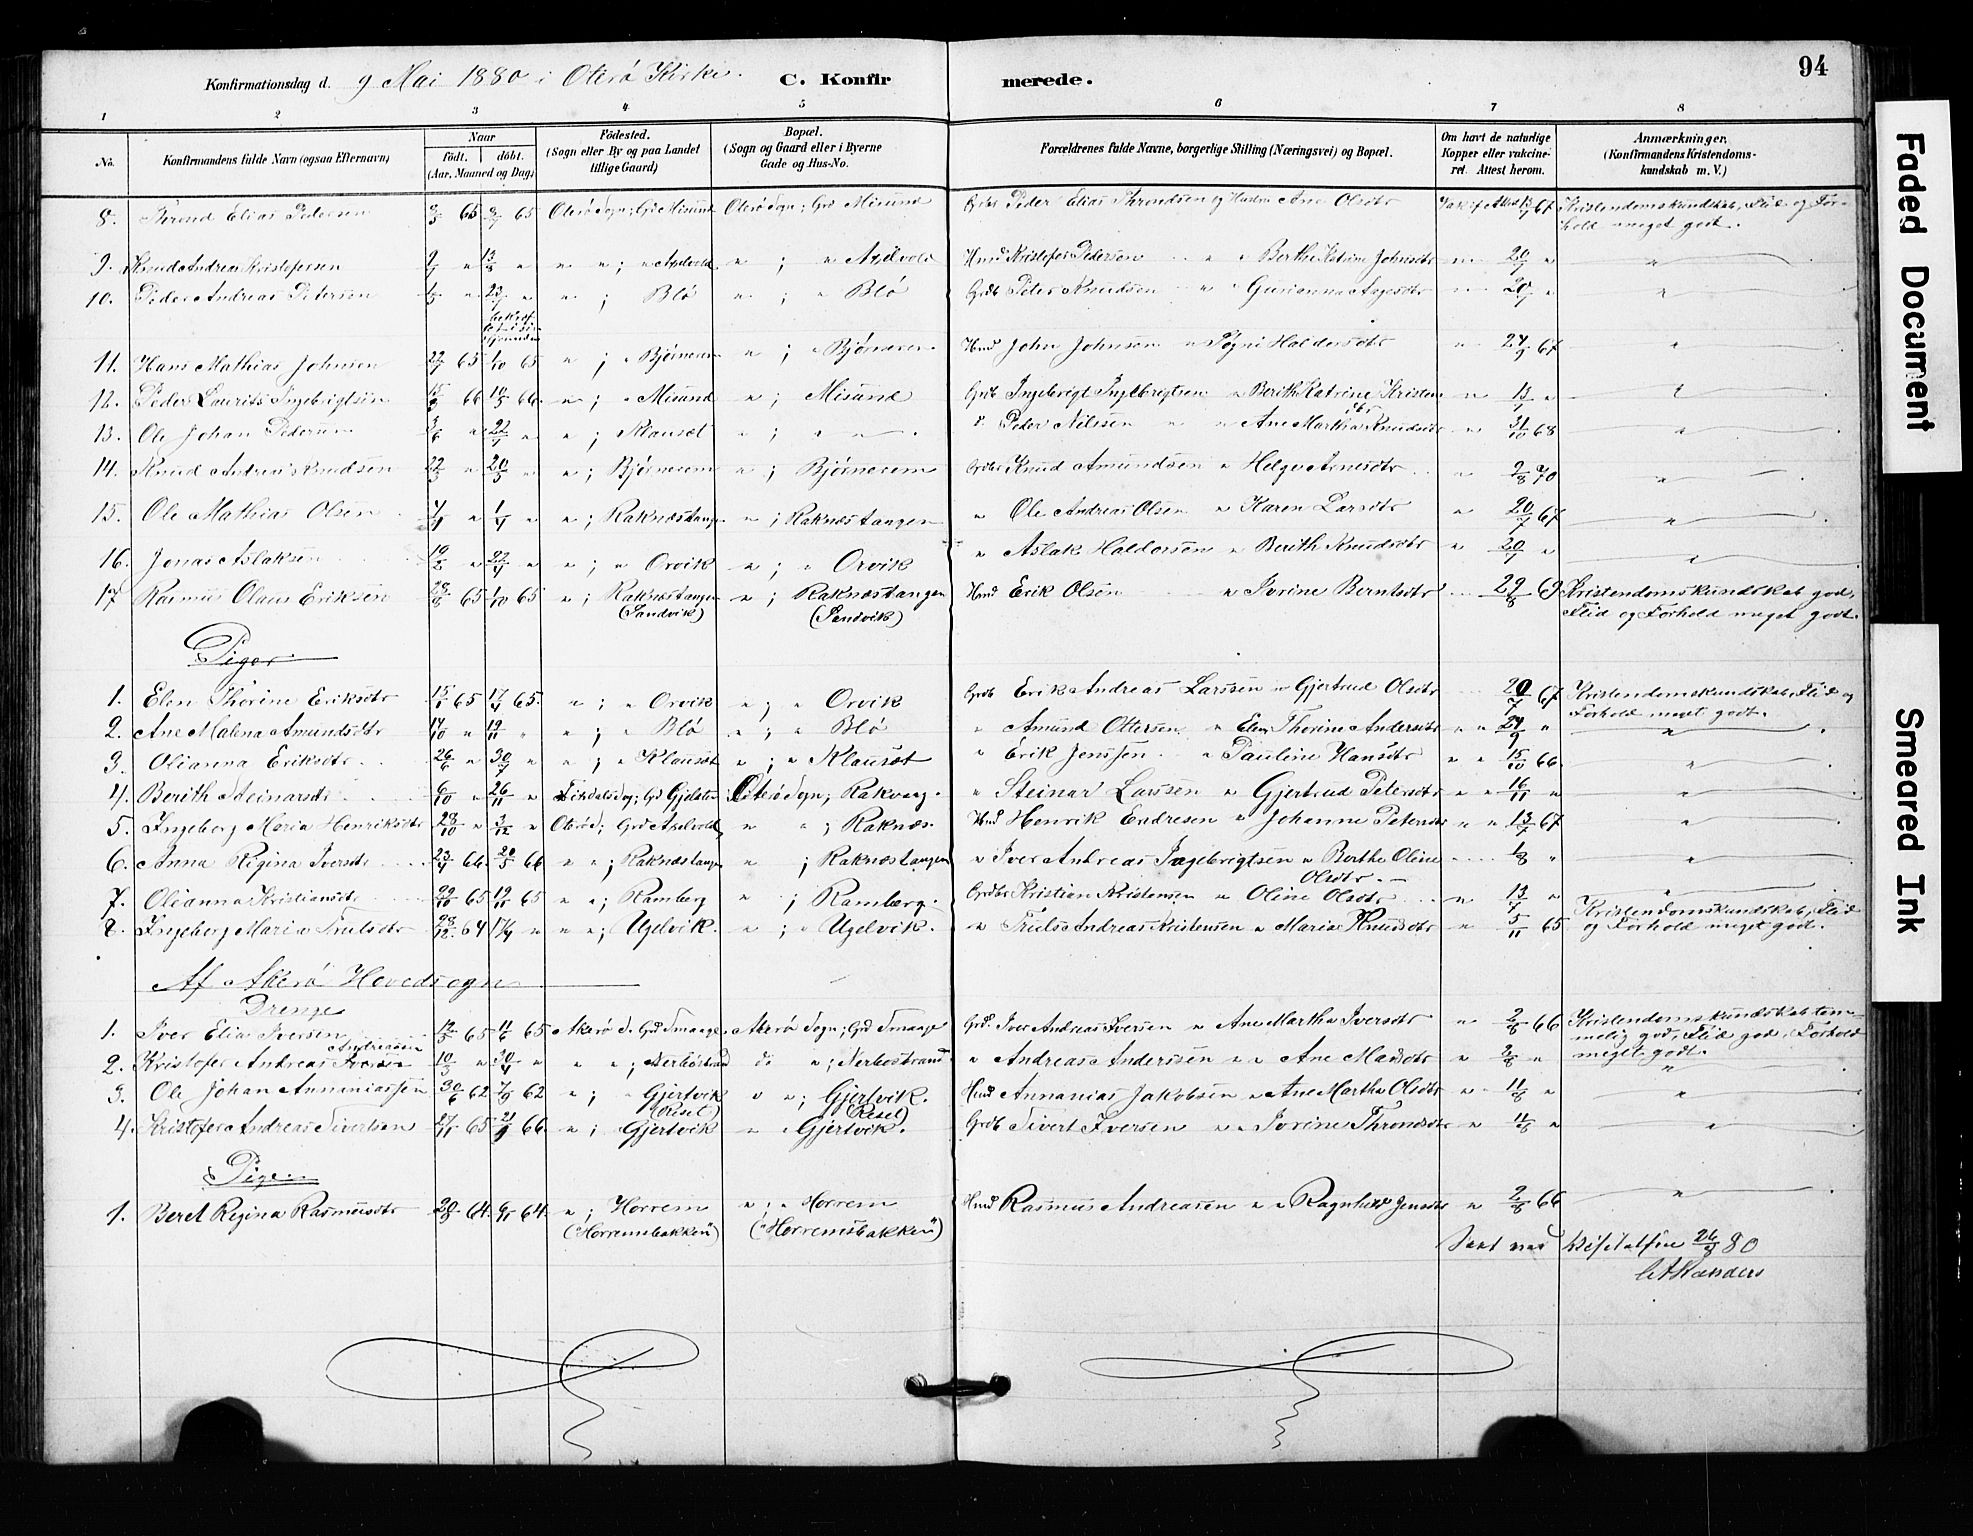 94
Konfirmationsdag d. 9 Mai 1880 i Oterö Kirke. C. Konfirmerede.
1 2 3 4 5 6 7 8
No. Konfirmandens fulde Navn (ogsaa Efternavn) Naar født. døbt. (Aar, Maaned og Dag) Fødested. (Sogn eller By og paa Landet tillige Gaard) Bopæl. (Sogn og Gaard eller i Byerne Gade og Hus-No. Forældrenes fulde Navne, borgerlige Stilling (Næringsvei) og Bopæl. Om havt de naturlige Kopper eller vakcineret. Attest herom. Anmærkninger, (Konfirmandens Kristendomskundskab m. V.)
8. Trond Elias Pedersen 65 65 Oterö Sogn; Grd Misund Oterö Sogn; Grd Misund Peder Elias Throndsen og Hustru Ane Olsdtr 67 Kristendomskundskab, Flid og Forhold meget godt.
9. Knud Andreas Kristofersen " 13/8 " " "; " " ; " Kristofer Pedersen " " Berthe Katrine Johnsdtr " 20/7 " "
10. Peder Andreas Petersen " " " ; Blö " ; " Blö Grdb Peter Knudsen " Gurianna " 20/7 " "
11. Hans Mathias Johnsen 65 1/10 65 " ; " Bjørnerem " ; " Bjørnerem Hmd John Johnsen " Haldorsdtr " 24/9 67 "
12. Peder Laurits Ingebrigtsen 66 66 " ; " Misund " ; Misund Grdb Ingebrigt Ingebrigtsen " Berith Katrine Kristensdtr " 13/7 " "
13. Ole Johan Pedersen " " " ; Klauset " ; " " Peder Nilssen " " Ane Martha Knudsdtr " 31/10 68 "
14. Knud Andreas Knudsen 22/3 " 20/5 " " ; Bjørnerem " ; Bjørnerem Knud Amundsen " Helge Arnesdtr " 2/8 70 "
15. Ole Mathias Olsen " " " ; Raknæstangen " ; Raknæstangen " Ole Andreas Olsen " Karen Larsdtr " 20/7 67 "
16. Jonas Aslaksen " " " ; " Orvik " ; " Orvik " Aslak Haldorsen " Berith Knudsdtr " 20/7 " "
17 Rasmus Olaus Eriksen 65 1/10 65 " ; Raknæstangen (Sandvik) " ; Raknæstangen (Sandvik) Hmd Erik Olsen " Iverine Berntsdtr 29/8 69 Kristendomskundskab god, Flid og Forhold meget godt.
Piger
1. Elen Thorine Eriksdtr 65 17/4 65. " ; " Orvik " ; " Orvik Grdb Erik Andreas Larssen " Gjertrud Olsdtr 20/7 67 Kristendomskundskab, Flid og Forhold meget godt.
2. Ane Malena Amundsdtr 14/10 " 19/11 " " ; " Blö " ; " Blö " Amund Ottersen " Elen Thorine Andersdtr " " 24/9 " "
3. Olianna Eriksdtr 26/6 " 30/7 " " ; " Klauset " ; " Klauset " Erik Jenssen " Pauline Hansdtr " " 15/10 66 "
4. Berith Steinarsdtr 6/10 " 26/11 " Grd Gjelsten Oterö Sogn; Rakvaag. " Steinar Larssen " Gjertrud Petersdtr " " 16/11 " "
5. Ingeborg Maria Henriksdtr 28/10 " 3/12 " " " ; Raknæs. Hmd Henrik Endresen " Johanne Petersdtr " " 13/7 67 "
6. Anna Regina Iversdtr 23/4 66 20/5 66 " " ; Raknæstangen " ; Raknæstangen " Iver Andreas Ingebrigtsen " Berthe Oline Olsdtr. 1/8 " "
7. Olianna Kristiansdtr 65 19/11 65 " " ; Ramberg " ; Ramberg. Kristian Kristensen " Oline Olsdtr " 13/7 " "
8. Ingeborg Maria Trulsdtr 28/12 64 17/4 " " " ; Ugelvik. " ; " Ugelvik. " Truls Andreas Kristensen " Maria Knudsdtr " 5/11 65 Kristendomskundskab, Flid og Forhold meget god.
Af Akerö Hovedsogn
Drenge
1. Iver Elias Iversen 65 11/6 65 Akerö S. Grd Smaage. Akerö Sogn; Grd Smaage Grd. Iver Andreas Iversen " Ane Martha Iversdtr " 2/8 66 Kristendomskundskab temmelig god, Flid god, Forhold meget godt.
2. Kristofer Andreas Andreassen " " " " ; Nerbøstrand do " ; Nerbøstrand. " Andreas Anderssen " " Ane Madsdtr " 2/8 " "
3. Ole Johan Annaniassen 30/6 62 7/9 62 " ; " Gjertvik (Reset) " " ; Gjertvik. (Reset) Hmd Annanias Jakobsen " Ane Martha Olsdtr " 11/8 " "
4. Kristofer Andreas Sivertsen 27/11 65 66 " ; Gjertvik " " Gjertvik. Grdb Sivert Iversen " " Iverine Throndsdtr " 11/8 " "
Pigen
1. Beret Regina Rasmusdtr 64. 64. " ; Horrem ("Horremsbakken") " ; " Horrem ("Horremsbakken") Hmd Rasmus Andreasen " " Ragnhild Jensdtr " 2/8 66 "
80